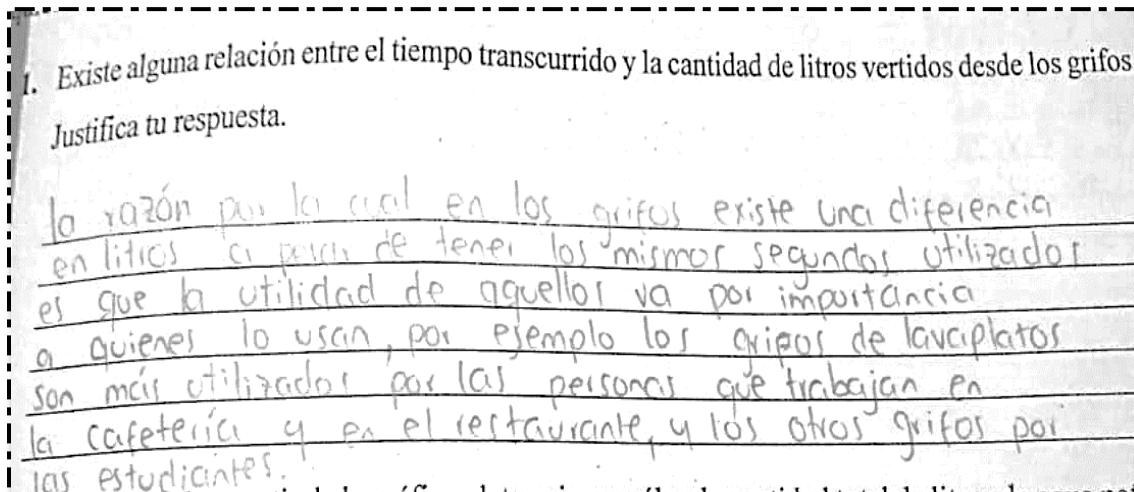 1. Existe alguna relación entre el tiempo transcurrido y la cantidad de litros vertidos desde los grifos
Justifica tu respuesta.
la razón por la cual en los grifos existe una diferencia
en litros a pesar de tener los mismos segundos utilizados
es que la utilidad de aquellos va por importancia
a quienes lo usan, por ejemplo los gripos de lavaplatos
son más utilizados por las personas que trabajan en
la cafetería y en el restaurante, y los otros grifos por
las estudiantes.